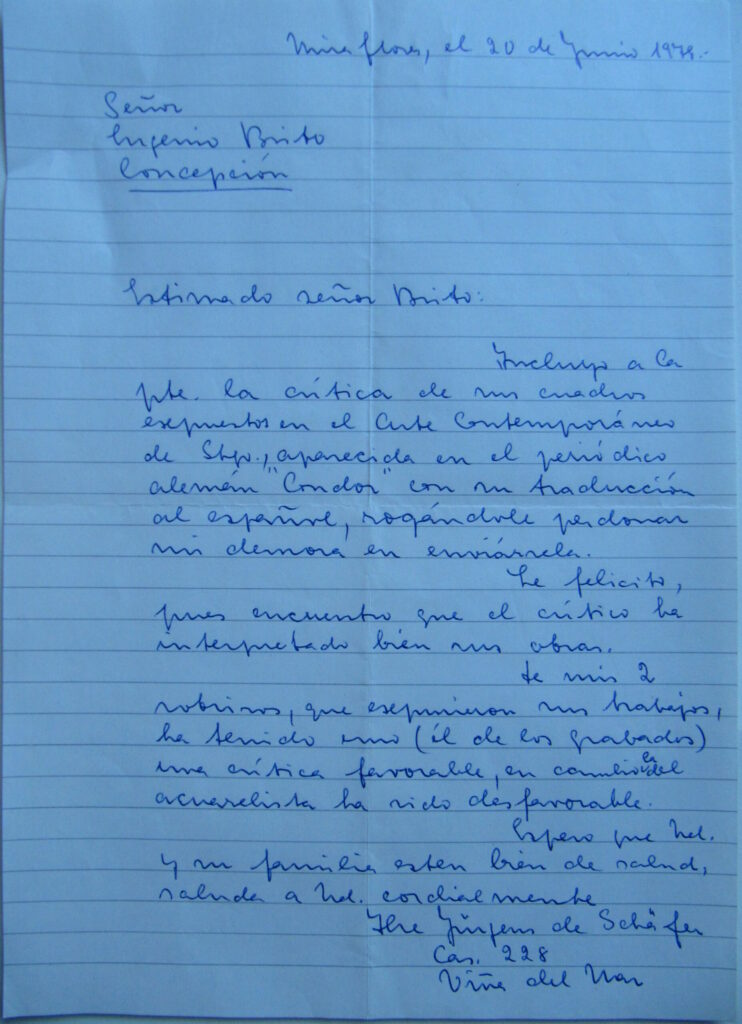 Miraflores, el 20 de Junio 1978.-
Señor
Eugenio Brito
Concepción
Estimado señor Brito:
Incluyo a la
pte. la crítica de sus cuadros
expuestos en el Arte Contemporáneo
de Stgo., aparecida en el periódico
alemán "Condor" con su traducción
al español, rogándole perdonar
mi demora en enviársela.
Le felicito,
pues encuentro que el crítico ha
interpretado bien sus obras.
De mis 2
sobrinos, que expusieron sus trabajos,
ha tenido uno (él de los grabados)
una crítica favorable, en cambio la del
acuarelista ha sido desfavorable.
Espero que Ud.
y su familia esten bien de salud,
saluda a Ud. cordialmente
Ilse Jürgens de Schäfer
Cas. 228
Viña del Mar